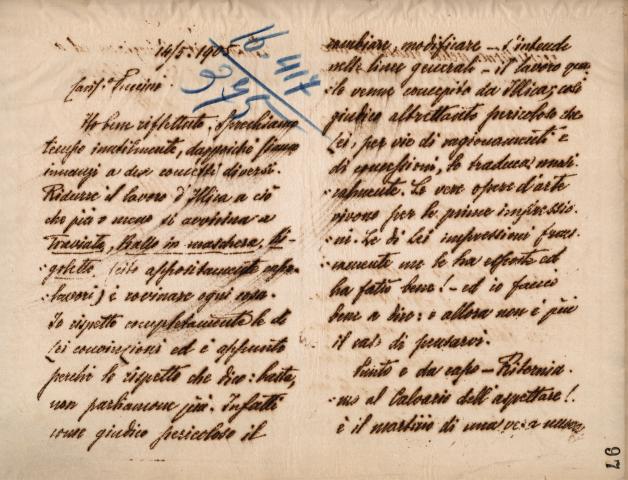 14/5:1905
16
417
395
Cariss.º Puccini
Ho bene riflettuto. Sprechiamo
tempo inutilmente, dappoichè siamo
innanzi a due concetti diversi.
Ridurre il lavoro d'Illica a ciò
che più o meno si avvicina a
Traviata, Ballo in maschera, Ri-
-goletto, (cito appositamente capo-
-lavori) è rovinare ogni cosa.
Io rispetto completamente le di
Lei convinzioni ed è appunto
perchè le rispetto che dico: basta,
non parliamone più. Infatti
come giudico pericoloso il
cambiare, modificare — s'intende
nelle linee generali — il lavoro quale
venne concepito da Illica, così
giudico altrettanto pericoloso che
Lei, per vie di ragionamenti e
di concessioni, lo traduca musi-
calmente. Le vere opere d'arte
vivono per le prime impressio-
-ni. Le di Lei impressioni franc-
-amente me le ha esposte ed
ha fatto bene! — ed io faccio
bene a dire: e allora non è più
il caso di pensarvi.
Punto e da capo — Ritornia-
-mo al Calvario dell'aspettare!
è il martirio di una vera
97